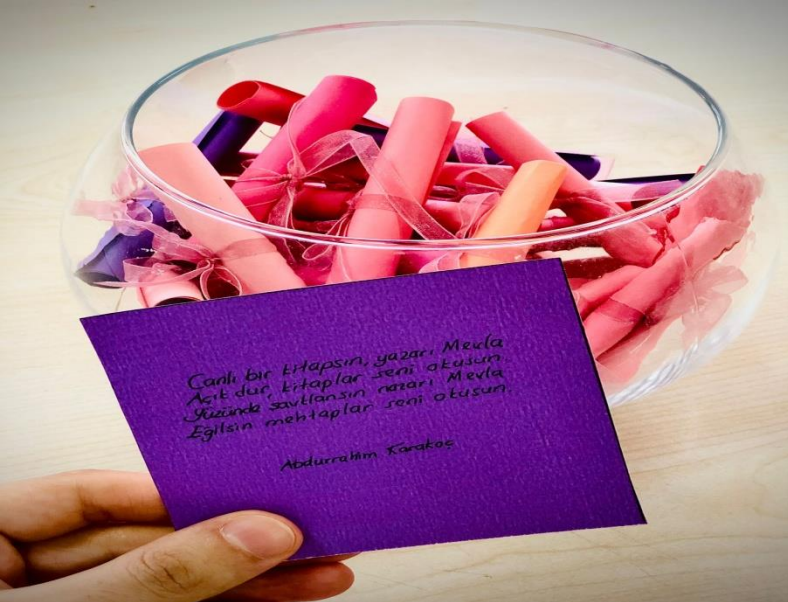 Canlı bir kitapsın, yazarı Mevla
Açık dur, kitaplar seni okusun.
Yüzünde saytlansın nazarı Mevla
Eğilsin mehtaplar seni okusun.
Abdurrahim Karakoç